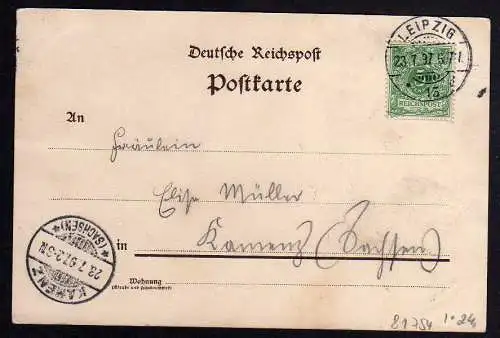 LEIPZIG
23.7.97
13
5
REICHSPOST
Deutsche Reichspost
Postkarte
An
Fräulein
Elise Müller
in Kamenz (Sachsen)
KAMENZ
(SACHSEN)
23.7.97.2-3N
Wohnung
(Straße und Hausnummer)
81784